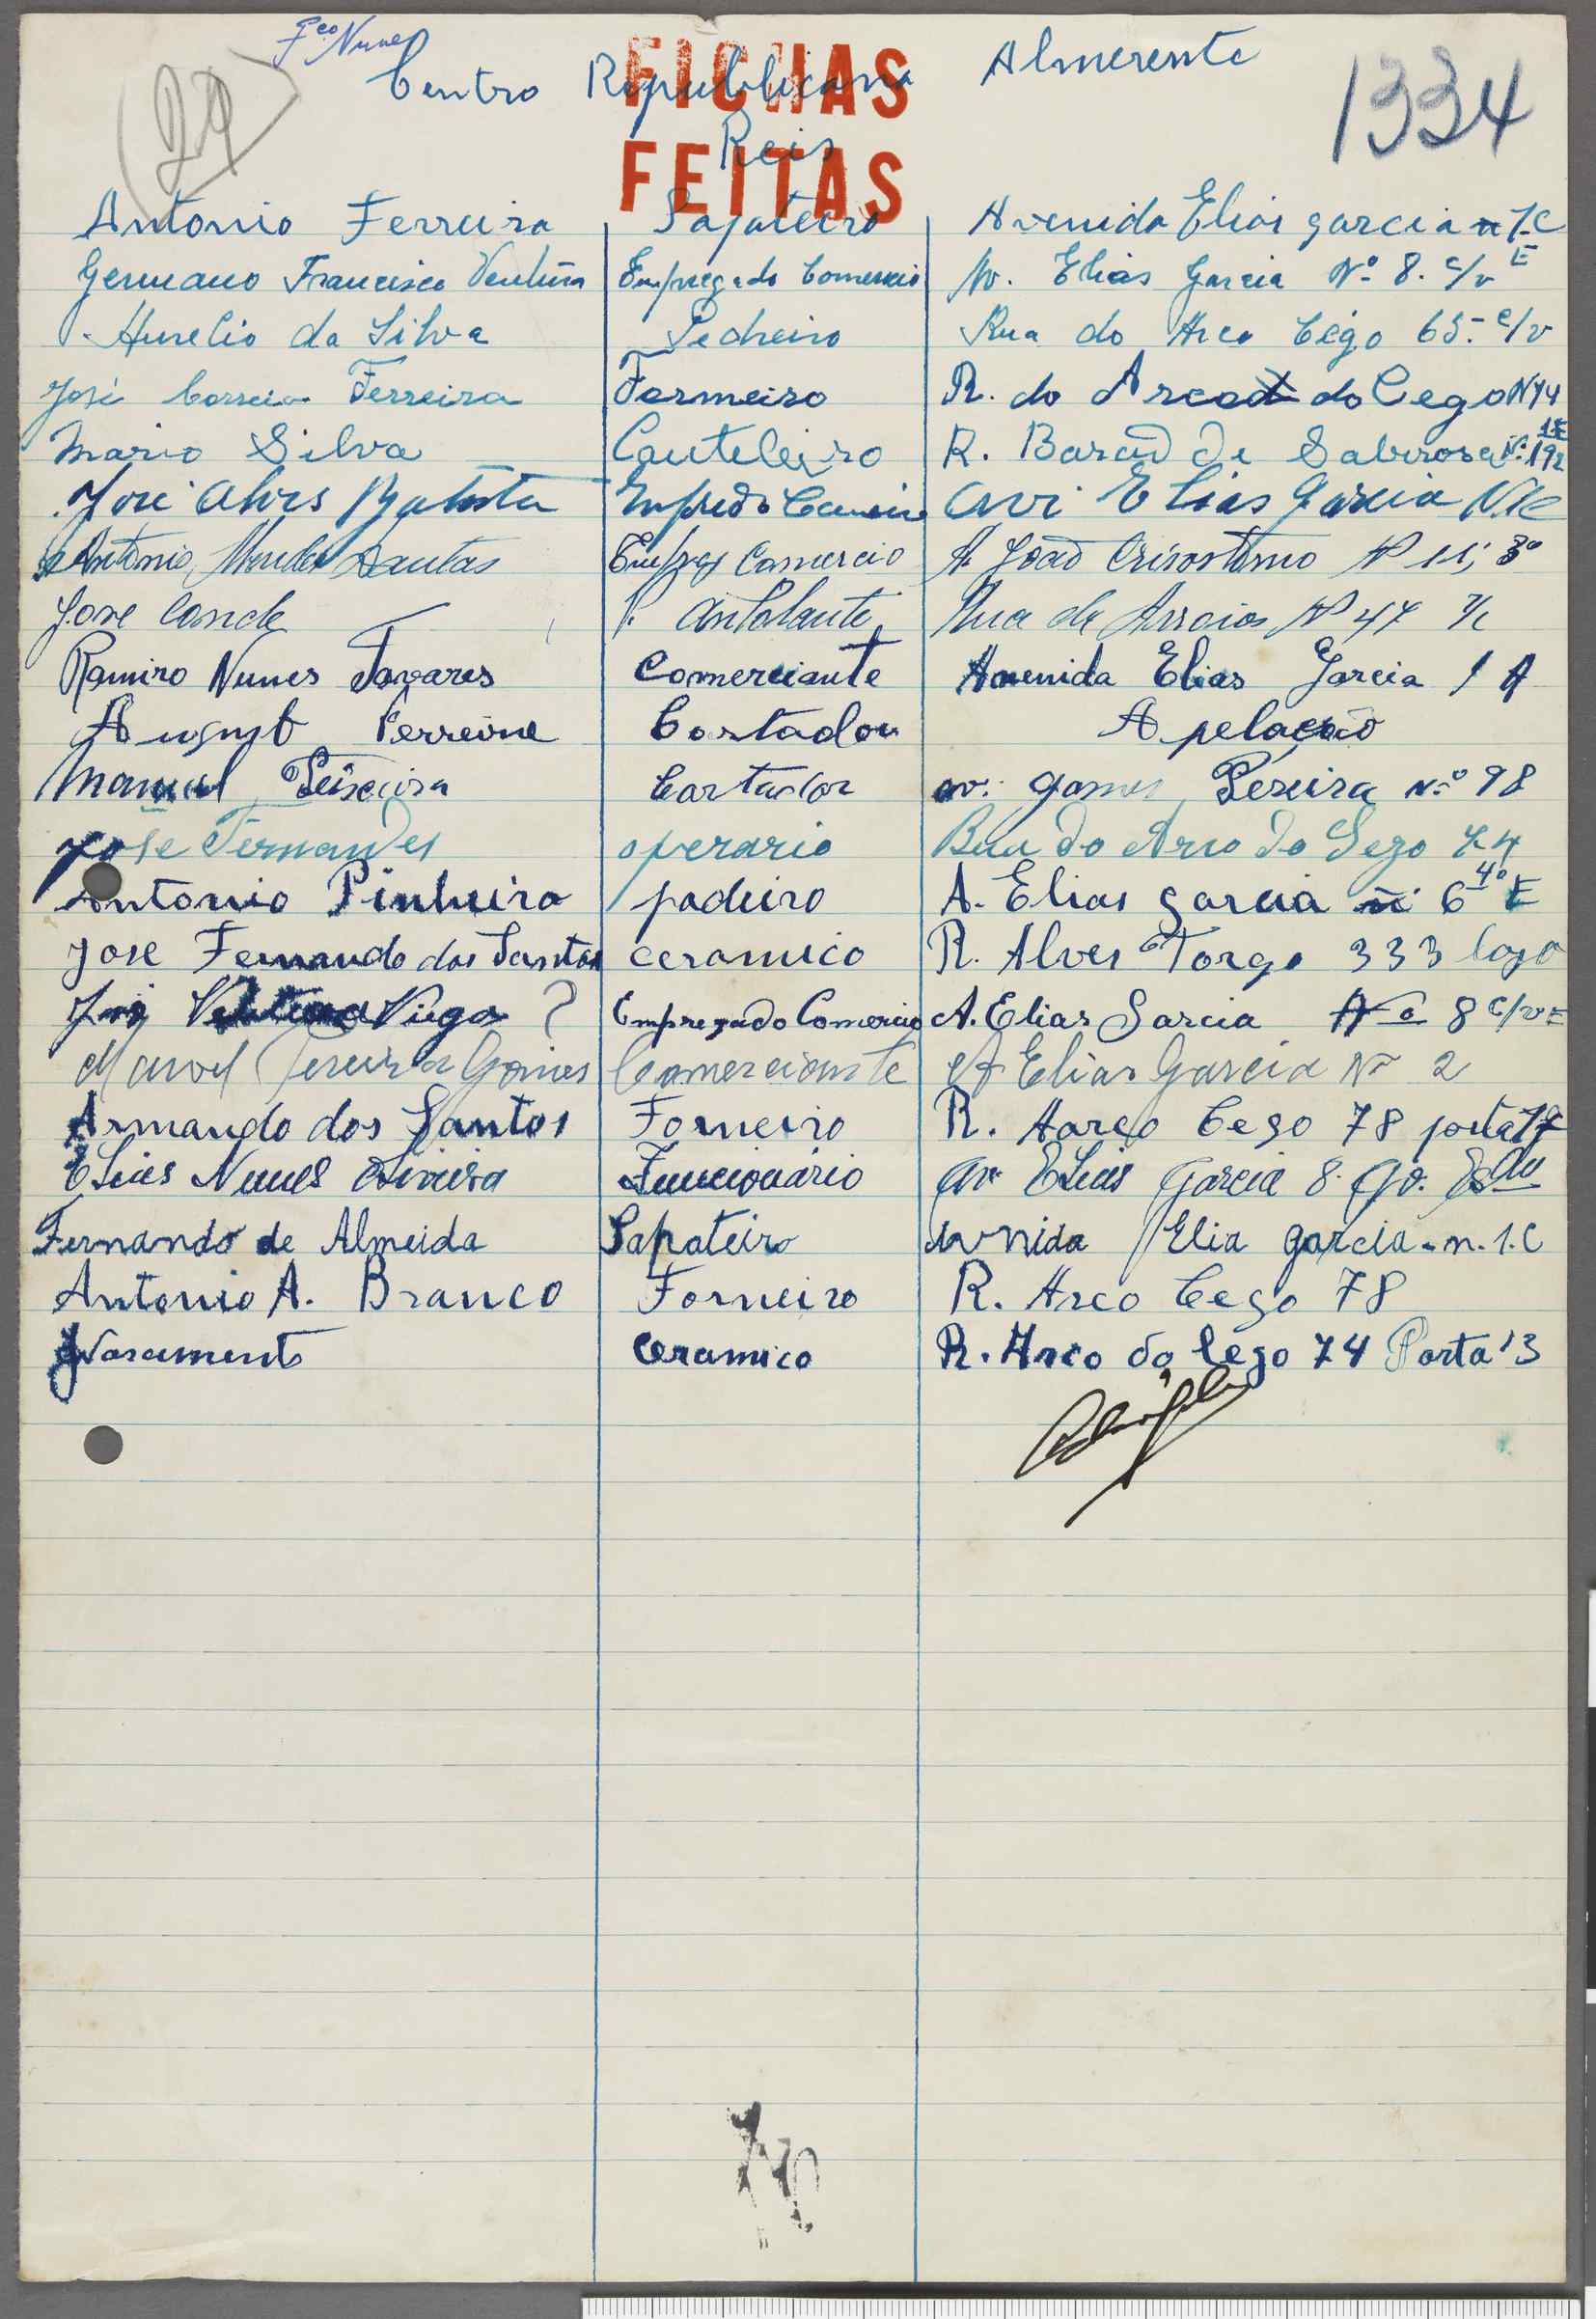 Fco Nunes
Centro Republicano Almerente
1334
29
FICHAS
Reis
FEITAS
Antonio Ferreira Sapateiro Avenida Elias garcia n 1-C
Germano Francisco Ventura Empregado Comercio Av. Elias Garcia Nº 8. c/v E
Aurelio da Silva Pedreiro Rua do Arco Cégo 65- c/v
José Correia Ferreira Formeiro R. do Arco do Cego N 74
Mario Silva Cauteleiro R. Barão de Sabrosa Nº 192
José Alves Batista Av Elias Garcia
Antonio Mendes Dantas Empreg Comercio A. João Crisostomo Nº 11, 3º
José Conde Anbolante Rua de Arroios Nº 47
Ramiro Nunes Tavares Comerciante Avenida Elias Garcia 1 A
August Ferreira Cortador Apelação
Manuel Teixeira Cartador av. Gomes Pereira Nº 98
José Fernandes operario Rua do Arco do Sego 74
Antonio Pinheiro padeiro A. Elias garcia nº 6 4º E
José Fernando dos Santos ceramico R. Alves Torgo 333 loja
Veiga ? Empregado Comercio A. Elias Garcia Nº 8 c/v E
Manoel Pereira Gomes Comerciante A Elias Garcia Nº 2
Armando dos Santos Forneiro R. Harco Cego 78 porta 17
Elias Nunes Funcionário Av Elias Garcia 8.
Fernando de Almeida Sapateiro Avnida Elia garcia n. 1.C
Antonio A. Branco Forneiro R. Arco Cego 78
J Nascimento Ceramico R. Arco do Cego 74 Porta 13